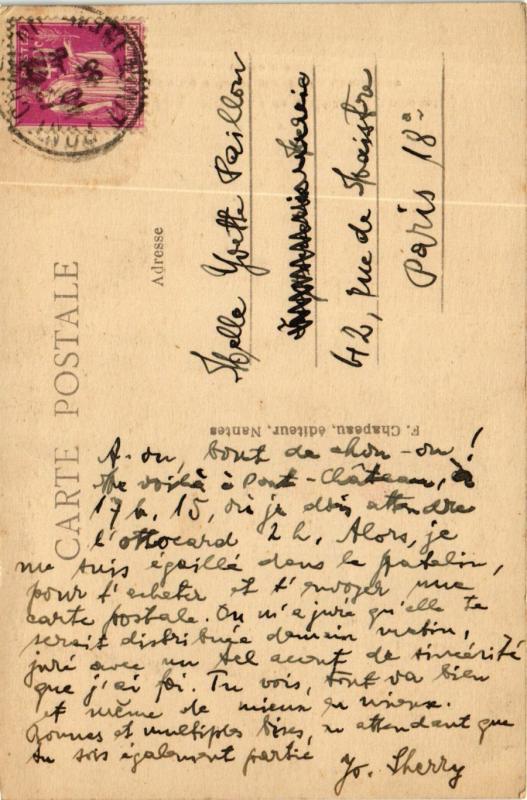 CARTE POSTALE
Adresse
Melle Yvette Paillon
42, rue de Maistre
Paris 18e
F. Chapeau, éditeur, Nantes
A-ou, bout de chou-ou!
Me voilà à Pont-Château, à
17h. 15, où je dois attendre
l'ottocard 2 h. Alors, je
me suis égaillé dans le patelin,
pour t'acheter et t'envoyer une
carte postale. On m'a juré qu'elle te
serait distribuée demain matin,
juré avec un tel accent de sincérité
que j'ai foi. Tu vois, tout va bien
et même de mieux en mieux.
Bonnes et multiples bises, en attendant que
tu sois également partie
Yo. Sherry